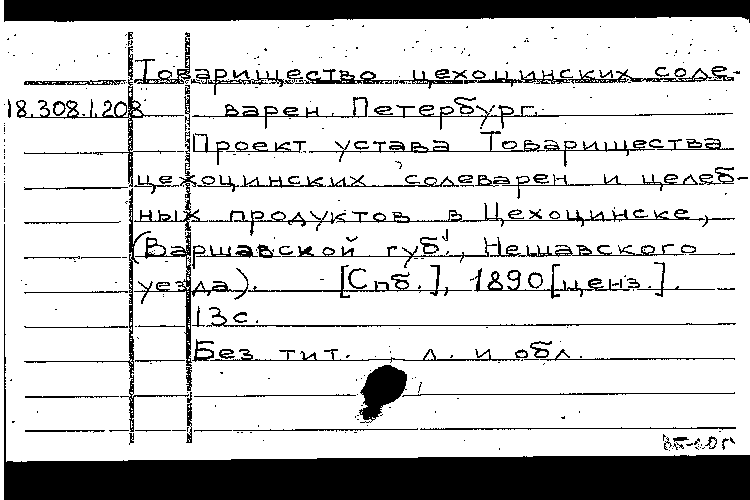 Товарищество цехоцинских соле-
18.308.1.208 варен. Петербург.
Проект устава Товарищества
цехоцинских солеварен и целеб-
ных продуктов в Цехоцинске,
(Варшавской губ., Нешавского
уезда). [Спб.], 1890 [ценз.].
13 с.
Без тит. л. и обл.